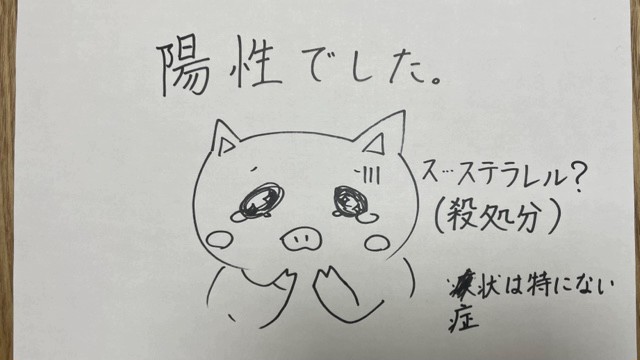 陽性でした。
ス…ステラレル?
(殺処分)
状は特にない
症